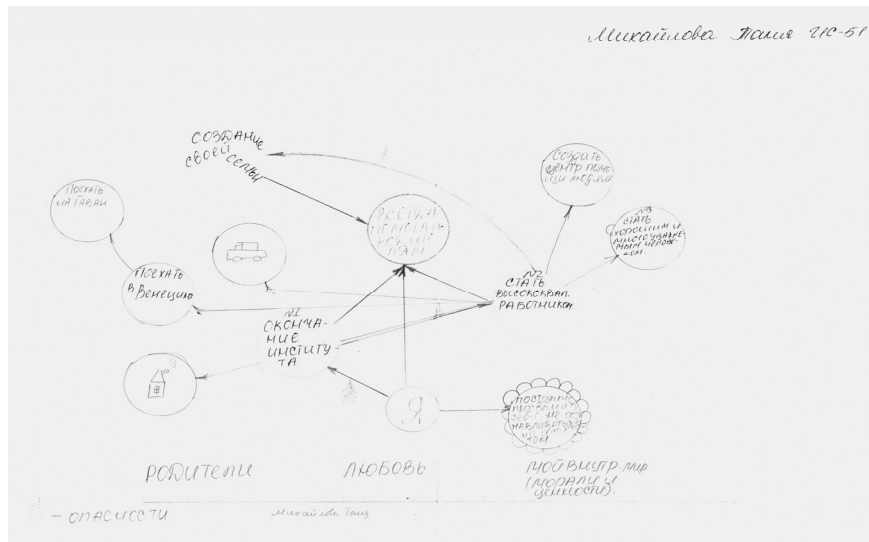 Михайлова Таня ИС-51
СОЗДАНИЕ
СВОЕЙ
СЕМЬИ
ПОЕХАТЬ
НА ГАВАИ
СОЗДАТЬ
ЦЕНТР ПОМО-
ЩИ ЛЮДЯМ
N3
СТАТЬ
ХОРОШИМ И
МНОГОУВАЖАЕ-
МЫМ ЧЕЛОВЕ-
КОМ.
ПОМОГАТЬ
ПОЕХАТЬ
В ВЕНЕЦИЮ
N2
СТАТЬ
ВЫСОКОКВАЛ.
РАБОТНИКОМ
N1
ОКОНЧА-
НИЕ
ИНСТИТУ-
ТА
Я
РОДИТЕЛИ
ЛЮБОВЬ
МОЙ ВНУТР. МИР
(МОРАЛИ И
ЦЕННОСТИ).
- ОПАСНОСТИ
Михайлова Таня